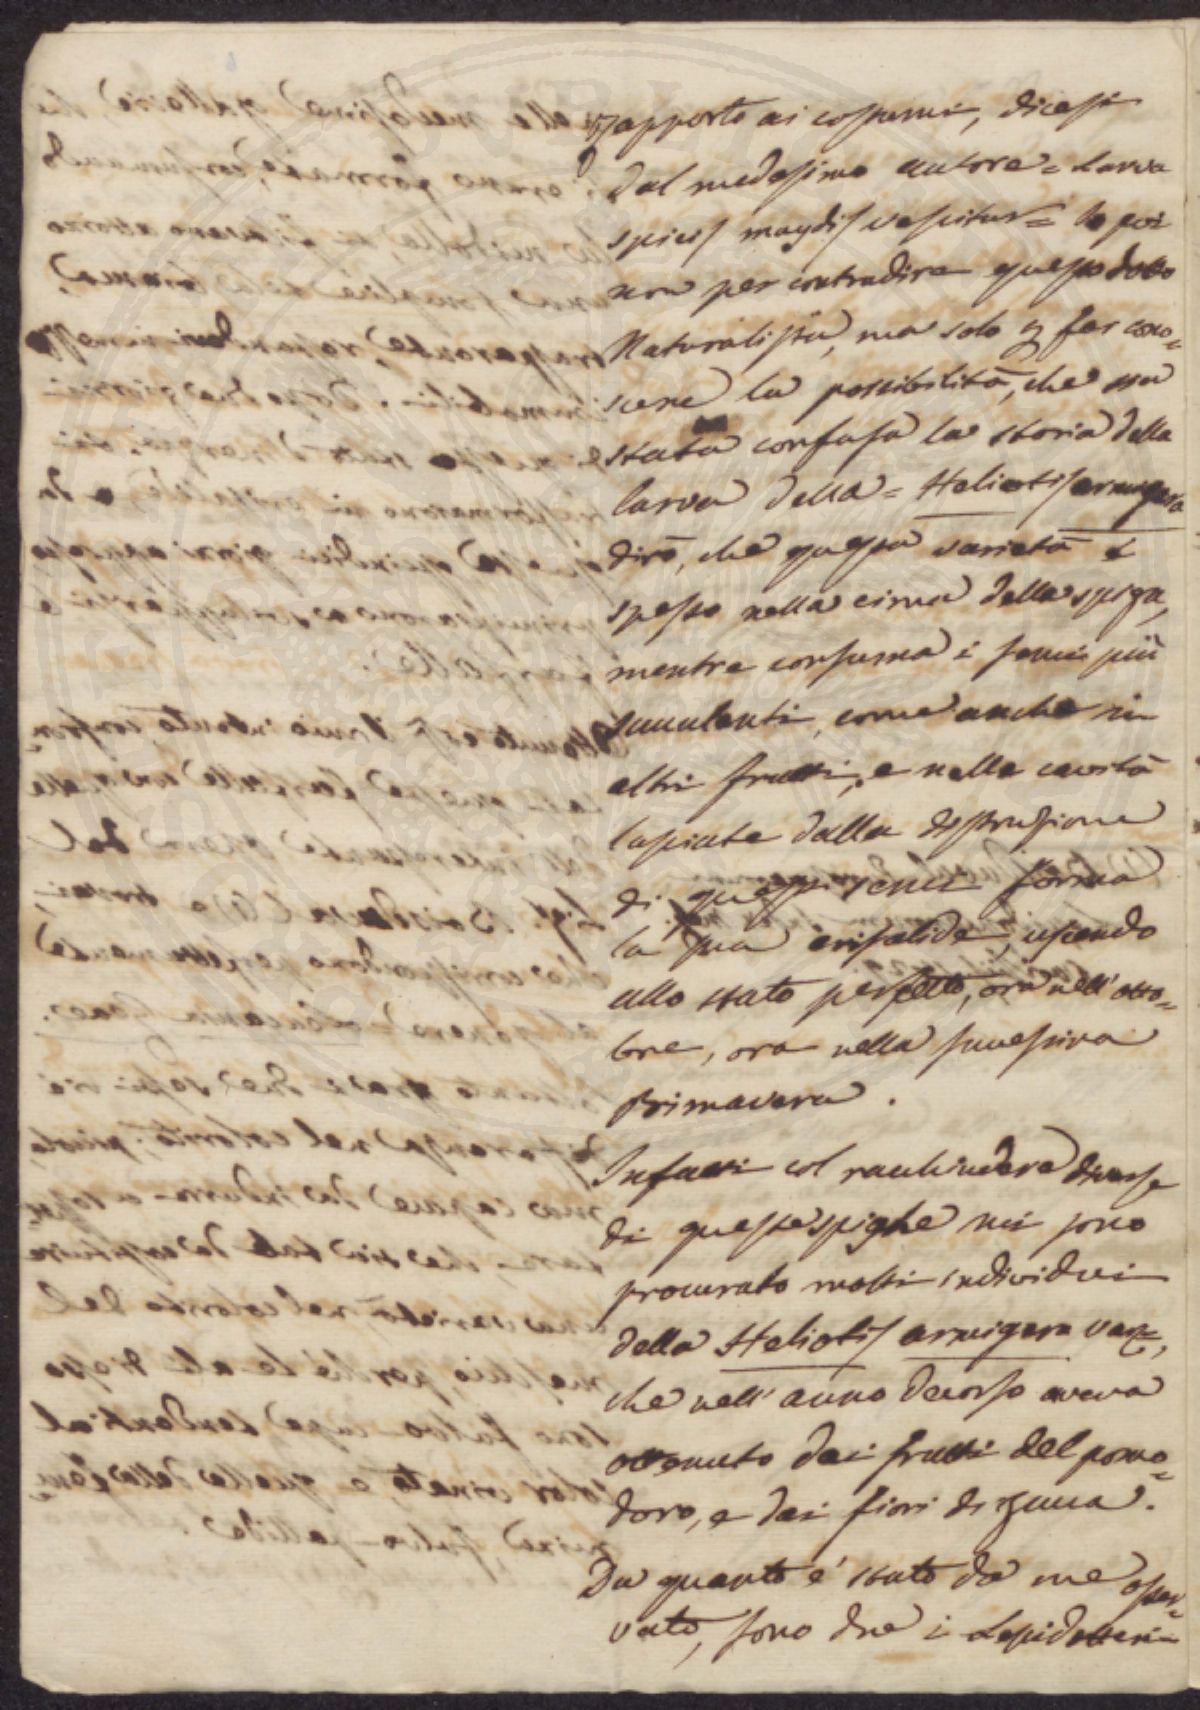 rapporto ai costumi, dicesi
dal medesimo autore = Larva
spicis maydis vescitur = Io poi
non per contradire questo dotto
Naturalista, ma solo p far cono=
scere la possibilità, che sia
stata confusa la storia della
larva della = Heliotis armigera
dirò, che questa varietà è
spesso nella cima della spiga,
mentre consuma i semi più
succulenti, come anche in
altri frutti, e nelle cavità
lasciate dalla distruzione
di questi semi forma
la sua crisalide, uscendo
allo stato perfetto, ora nell'otto=
bre, ora nella successiva
Primavera.
Infatti col racchiudere diverse
di queste spighe mi sono
procurato molti individui
della Heliotis armigera var.,
che nell'anno decorso aveva
ottenuto dai frutti del pomo=
doro, e dai fiori di zucca.
Da quanto è stato da me osser=
vato, sono due i Lepidotteri